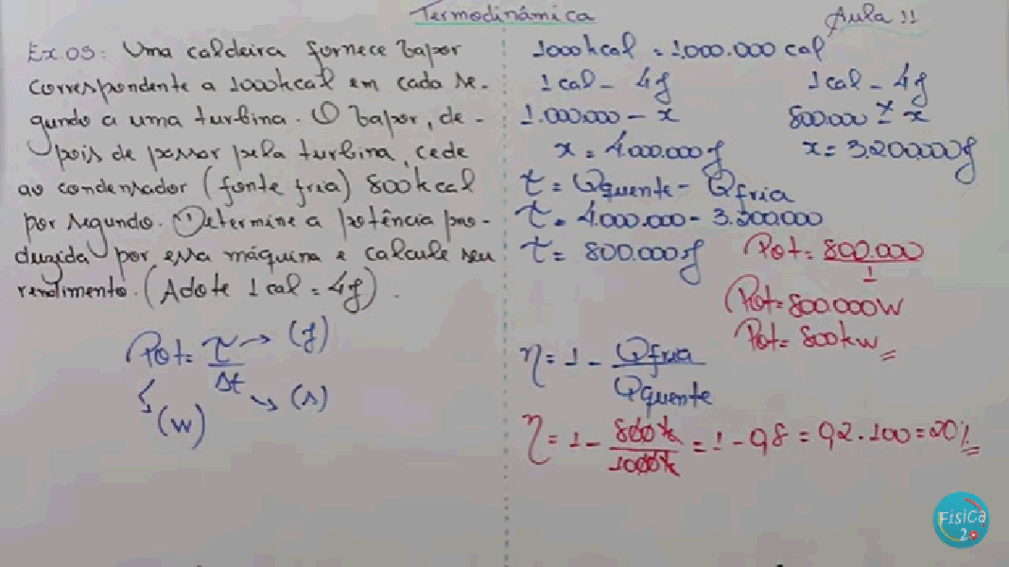 Termodinâmica
Aula 11
Ex.05: Uma caldeira fornece vapor
correspondente a 1000kcal em cada se-
gundo a uma turbina. O vapor, de-
pois de passar pela turbina, cede
ao condensador (fonte fria) 800kcal
por segundo. Determine a potência pro-
duzida por essa máquina e calcule seu
rendimento. (Adote 1cal = 4J).
Pot = τ → (J)
Δt → (s)
(W)
1000kcal = 1.000.000 cal
1cal - 4J
1.000.000 - x
x = 4.000.000J
1cal - 4J
800.000 - x
x = 3.200.000J
τ = Qquente - Qfria
τ = 4.000.000 - 3.200.000
τ = 800.000J
Pot = 800.000
1
Pot = 800.000W
Pot = 800kW
η = 1 - Qfria
Qquente
η = 1 - 800k = 1 - 0,8 = 0,2 . 100 = 20%
1000k
Física
2.0